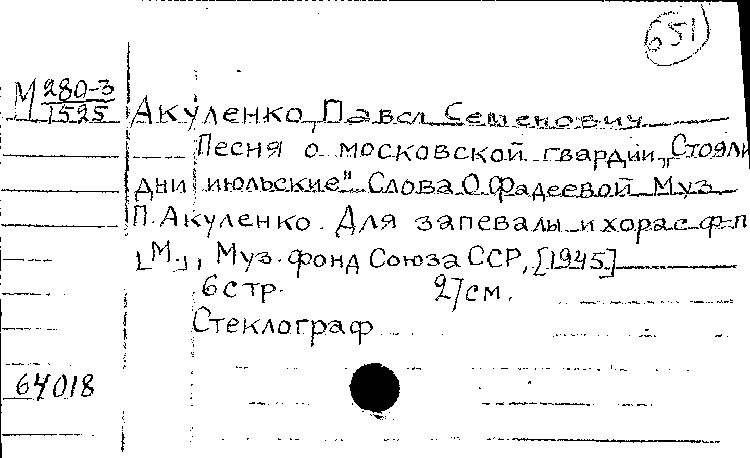 651
М 280-3
1525
Акуленко, Павел Семенович
Песня о московской гвардии „Стояли
дни июльские" Слова О. Фадеевой Муз
П. Акуленко. Для запевалы и хора с ф-п
[М.], Муз. фонд Союза ССР, [1945]
6 стр. 27 см.
Стеклограф
64018